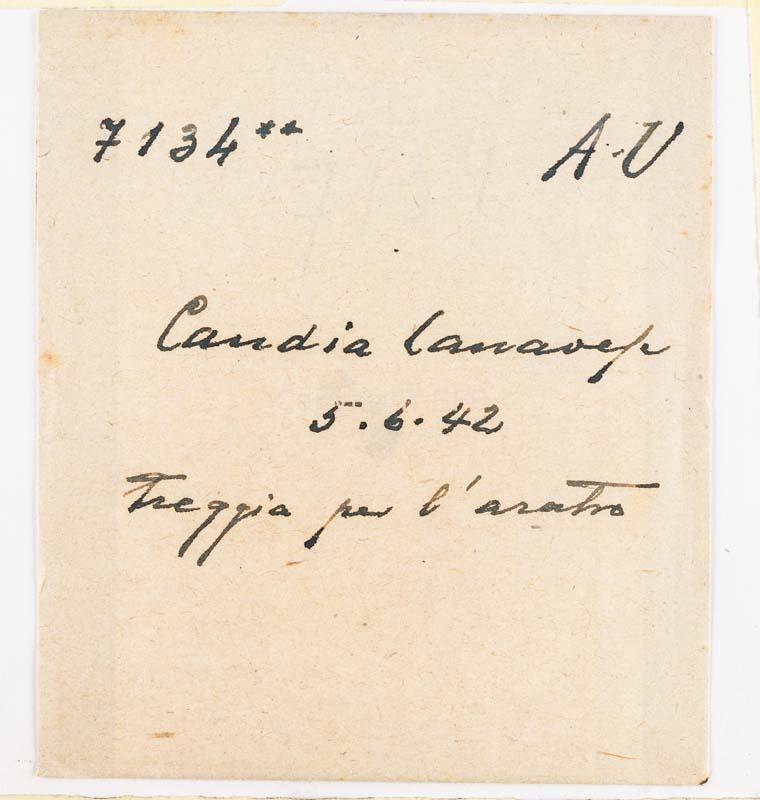 7134** A.V
Candia Canavese
5.6.42
Treggia per l'aratro